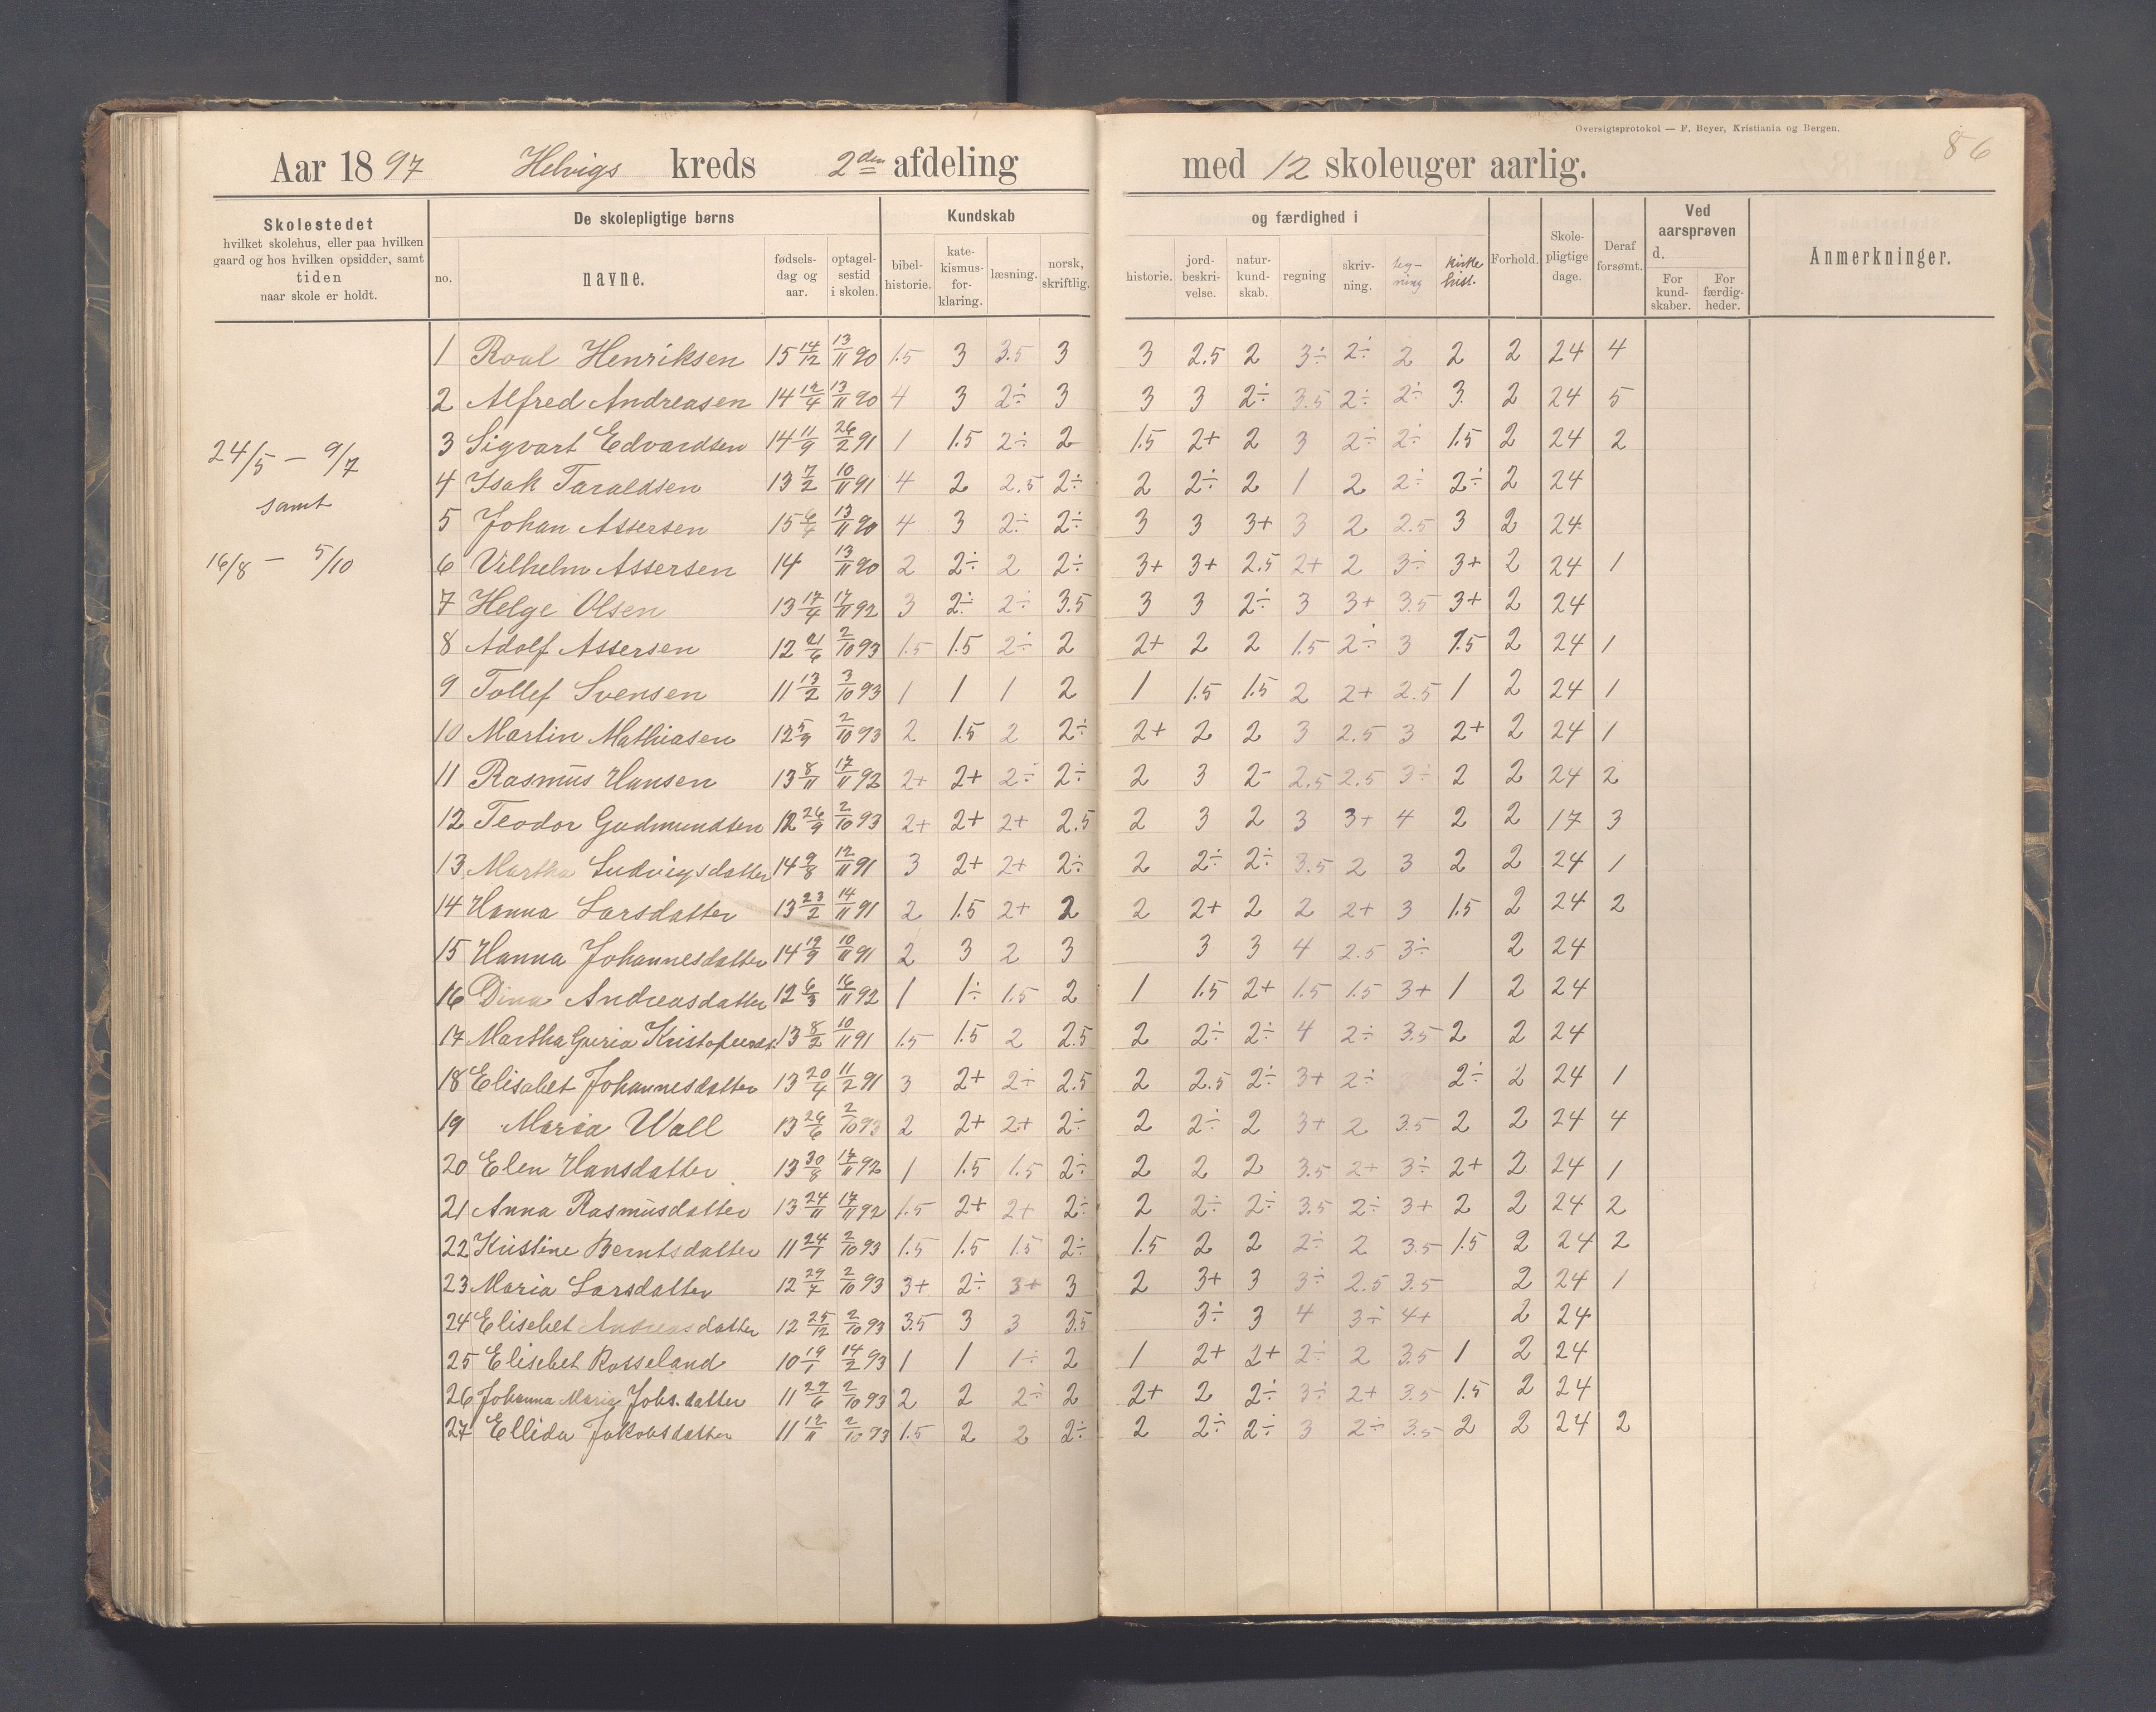 Oversigtsprotokol — F. Beyer, Kristiania og Bergen.
86
Aar 1897 Helvigs kreds 2den afdeling med 12 skoleuger aarlig.
Skolestedet hvilket skolehus, eller paa hvilken gaard og hos hvilken opsidder, samt tiden naar skole er holdt.
De skolepligtige børns
no. navne. fødsels-dag og aar. optagel-sestid i skolen.
Kundskab og færdighed i
bibel-historie. kate-kismus-for-klaring. læsning. norsk, skriftlig. historie. jord-beskri-velse. natur-kund-skab. regning skriv-ning. teg-ning kirke hist. Forhold. Skole-pligtige dage. Deraf forsømt.
Ved aarsprøven d. For kund-skaber. For færdig-heder.
Anmerkninger.
24/5 — 9/7
samt
16/8 — 5/10
1 Roal Henriksen 15 14/12 13/11 90 1.5 3 3.5 3 3 2.5 2 3÷ 2÷ 2 2 2 24 4
2 Alfred Andreasen 14 12/4 13/11 90 4 3 2÷ 3 3 3 2÷ 3.5 2÷ 2÷ 3 2 24 5
3 Sigvart Edvardsen 14 11/9 26/2 91 1 1.5 2÷ 2 1.5 2+ 2 3 2÷ 2÷ 1.5 2 24 2
4 Isak Taraldsen 13 7/2 10/11 91 4 2 2.5 2÷ 2 2÷ 2 1 2 2÷ 2÷ 2 24
5 Johan Assersen 15 6/4 13/11 90 4 3 2÷ 2÷ 3 3 3+ 3 2 2.5 3 2 24
6 Vilhelm Assersen 14 13/11 90 2 2÷ 2 2÷ 3+ 3+ 2.5 2+ 2 3÷ 3+ 2 24 1
7 Helge Olsen 13 17/4 17/11 92 3 2÷ 2÷ 3.5 3 3 2÷ 3 3+ 3.5 3+ 2 24
8 Adolf Assersen 12 21/6 2/10 93 1.5 1.5 2÷ 2 2+ 2 2 1.5 2÷ 3 1.5 2 24 1
9 Tollef Svensen 11 13/2 3/10 93 1 1 1 2 1 1.5 1.5 2 2+ 2.5 1 2 24 1
10 Martin Mathiasen 12 5/9 2/10 93 2 1.5 2 2÷ 2+ 2 2 3 2.5 3 2+ 2 24 1
11 Rasmus Hansen 13 8/11 17/11 92 2+ 2+ 2÷ 2÷ 2 3 2- 2.5 2.5 3÷ 2 2 24 2
12 Teodor Gudmundsen 12 26/9 2/10 93 2+ 2+ 2+ 2.5 2 3 2 3 3+ 4 2 2 17 3
13 Martha Ludvigsdatter 14 9/8 12/11 91 3 2+ 2+ 2÷ 2 2÷ 2÷ 3.5 2 3 2 2 24 1
14 Hanna Larsdatter 13 23/2 14/11 91 2 1.5 2+ 2 2 2+ 2 2 2+ 3 1.5 2 24 2
15 Hanna Johannesdatter 14 19/9 10/11 91 2 3 2 3 3 3 4 2.5 3÷ 2 24
16 Dina Andreasdatter 12 6/3 16/11 92 1 1÷ 1.5 2 1 1.5 2+ 1.5 1.5 3+ 1 2 24
17 Martha Guria 13 8/2 10/11 91 1.5 1.5 2 2.5 2 2÷ 2÷ 4 2÷ 3.5 2 2 24
18 Elisabet Johannesdatter 13 20/4 11/2 91 3 2+ 2÷ 2.5 2 2.5 2÷ 3+ 2÷ 2÷ 2 24 1
19 Maria Wall 13 26/6 2/10 93 2 2+ 2+ 2÷ 2 2÷ 2 3+ 2 3.5 2 2 24 4
20 Elen Hansdatter 13 30/8 17/11 92 1 1.5 1.5 2÷ 2 2 2 3.5 2+ 3÷ 2+ 2 24 1
21 Anna Rasmusdatter 13 24/11 17/11 92 1.5 2+ 2+ 2÷ 2 2÷ 2÷ 3.5 2÷ 3+ 2 2 24 2
22 Kristine Berntsdatter 11 24/1 2/10 93 1.5 1.5 1.5 2÷ 1.5 2 2 2÷ 2 3.5 1.5 2 24 2
23 Maria Larsdatter 12 29/7 2/10 93 3+ 2÷ 3+ 3 2 3+ 3 3÷ 2.5 3.5 2 24 1
24 Elisebet Andreasdatter 12 25/12 2/10 93 3.5 3 3 3.5 3÷ 3 4 3÷ 4+ 2 24
25 Elisebet Rosseland 10 19/1 14/2 93 1 1 1÷ 2 1 2+ 2+ 2÷ 2 3.5 1 2 24
26 Johanna Maria Johs.datter 11 29/6 2/10 93 2 2 2÷ 2 2+ 2 2÷ 3÷ 2+ 3.5 1.5 2 24
27 Ellida Jakobsdatter 11 12/11 2/10 93 1.5 2 2 2÷ 2 2÷ 2÷ 3 2÷ 3.5 2 2 24 2